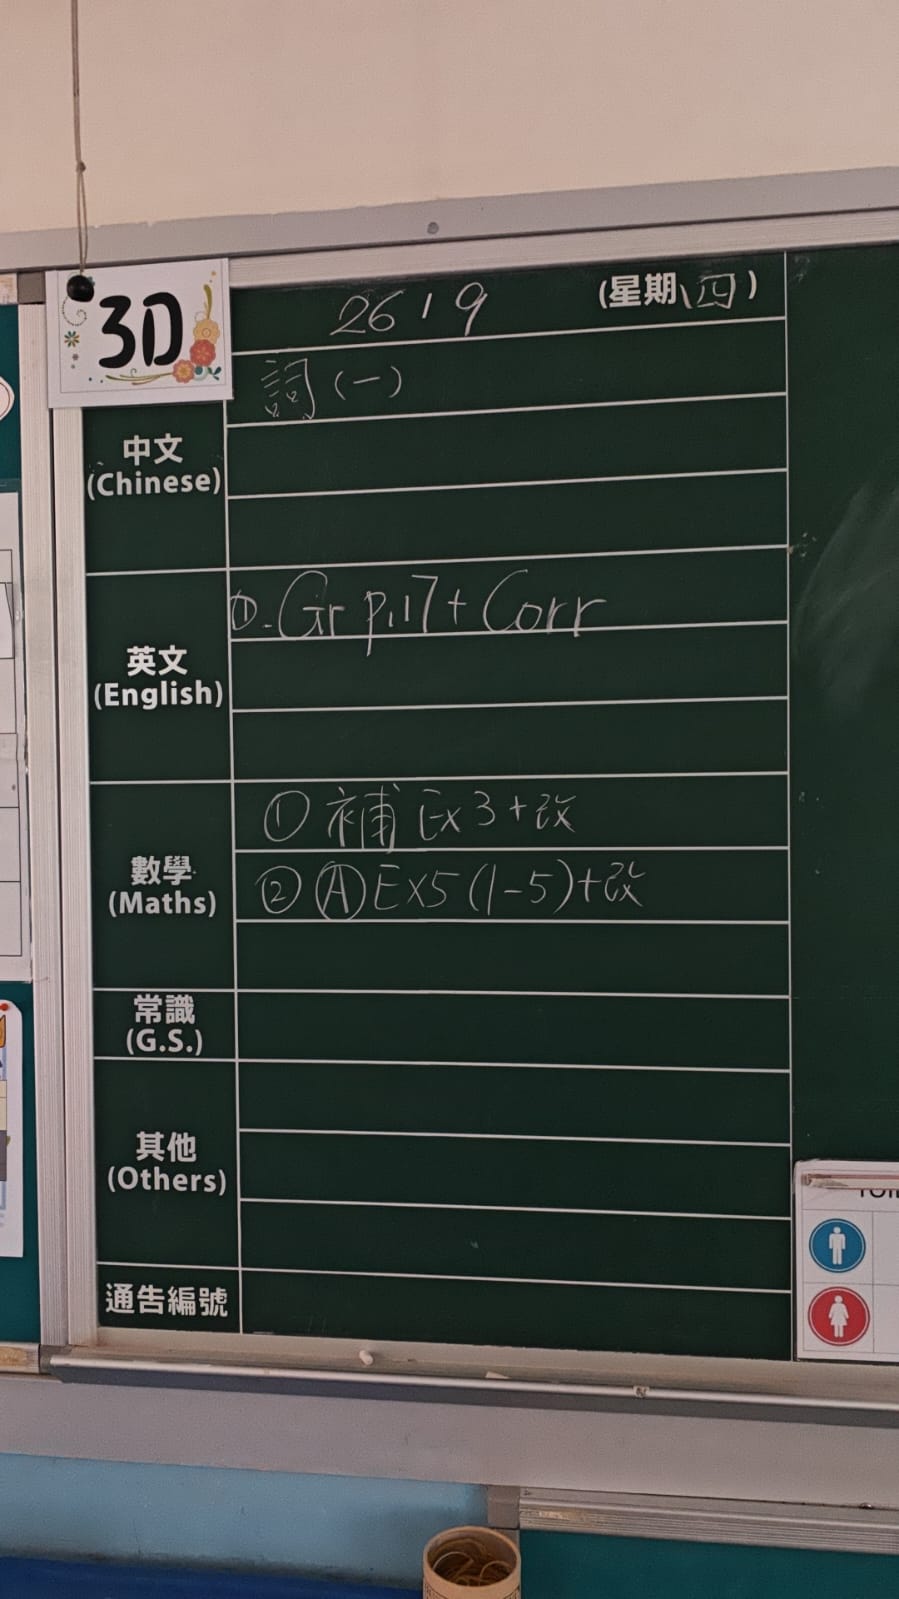 3D
26/9 (星期(四))
詞(一)
中文
(Chinese)
①. Gr p.17 + Corr
英文
(English)
① 補 Ex 3 + 改
② Ⓐ Ex5 (1-5) + 改
數學
(Maths)
常識
(G.S.)
其他
(Others)
通告編號